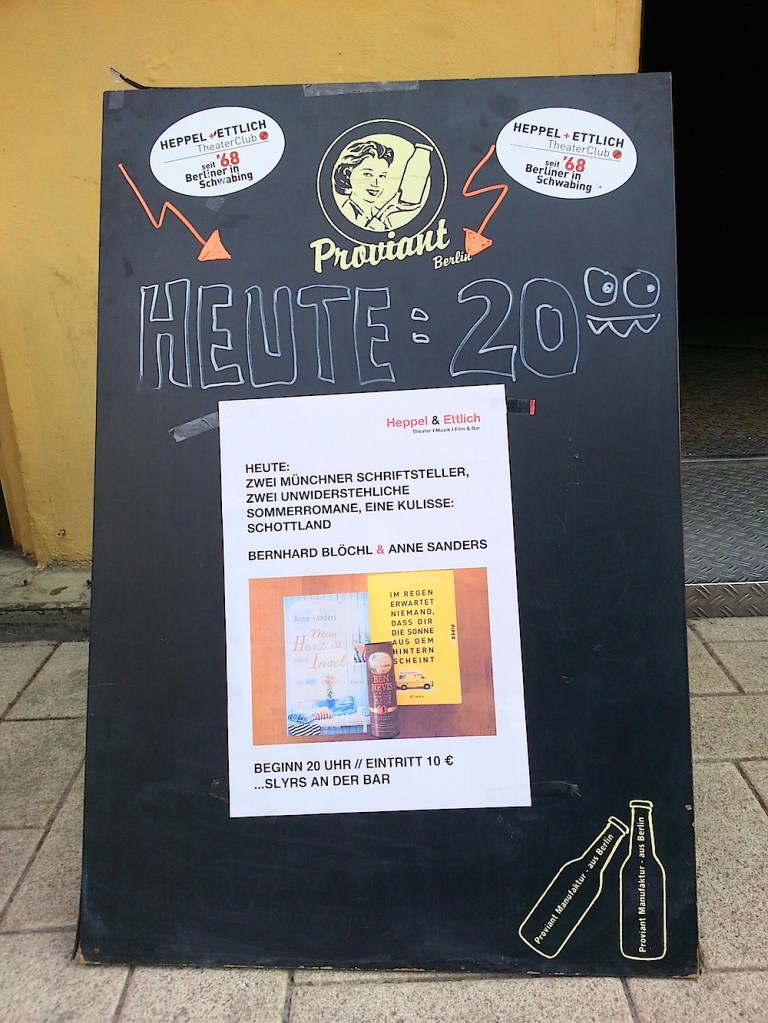 HEPPEL + ETTLICH
TheaterClub
seit '68
Berliner in
Schwabing
HEPPEL + ETTLICH
TheaterClub
seit '68
Berliner in
Schwabing
Proviant
Berlin
HEUTE: 20⁰⁰
Heppel & Ettlich
Theater | Musik | Film & Bar
HEUTE:
ZWEI MÜNCHNER SCHRIFTSTELLER,
ZWEI UNWIDERSTEHLICHE
SOMMERROMANE, EINE KULISSE:
SCHOTTLAND
BERNHARD BLÖCHL & ANNE SANDERS
Anne Sanders
Mein
Herz ist
eine
Insel
IM REGEN
ERWARTET
NIEMAND,
DASS DIR
DIE SONNE
AUS DEM
HINTERN
SCHEINT
PIPER
BEN
NEVIS
BEGINN 20 UHR // EINTRITT 10 €
...SLYRS AN DER BAR
Proviant Manufaktur - aus Berlin
Proviant Manufaktur - aus Berlin